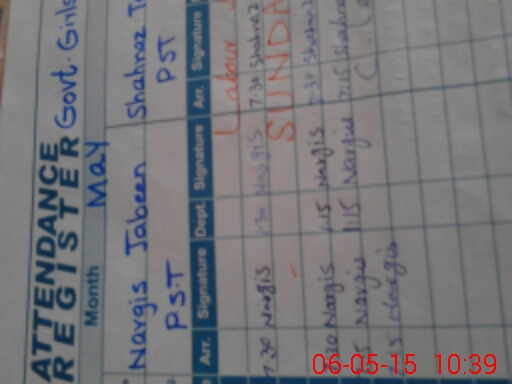 ATTENDANCE
REGISTER Govt. Girls
Month May
Nargis Jabeen Shahnaz
P.S.T PST
Arr. Signature Dept. Signature Arr. Signature
Labour
7:30 Nargis 1:30 Nargis 7:30 Shahnaz
SUNDA
7:30 Nargis 1:15 Nargis 7:30 Shahnaz
7:15 Nargis 1:15 Nargis 7:15 Shahna
7:15 Nargis
06-05-15 10:39